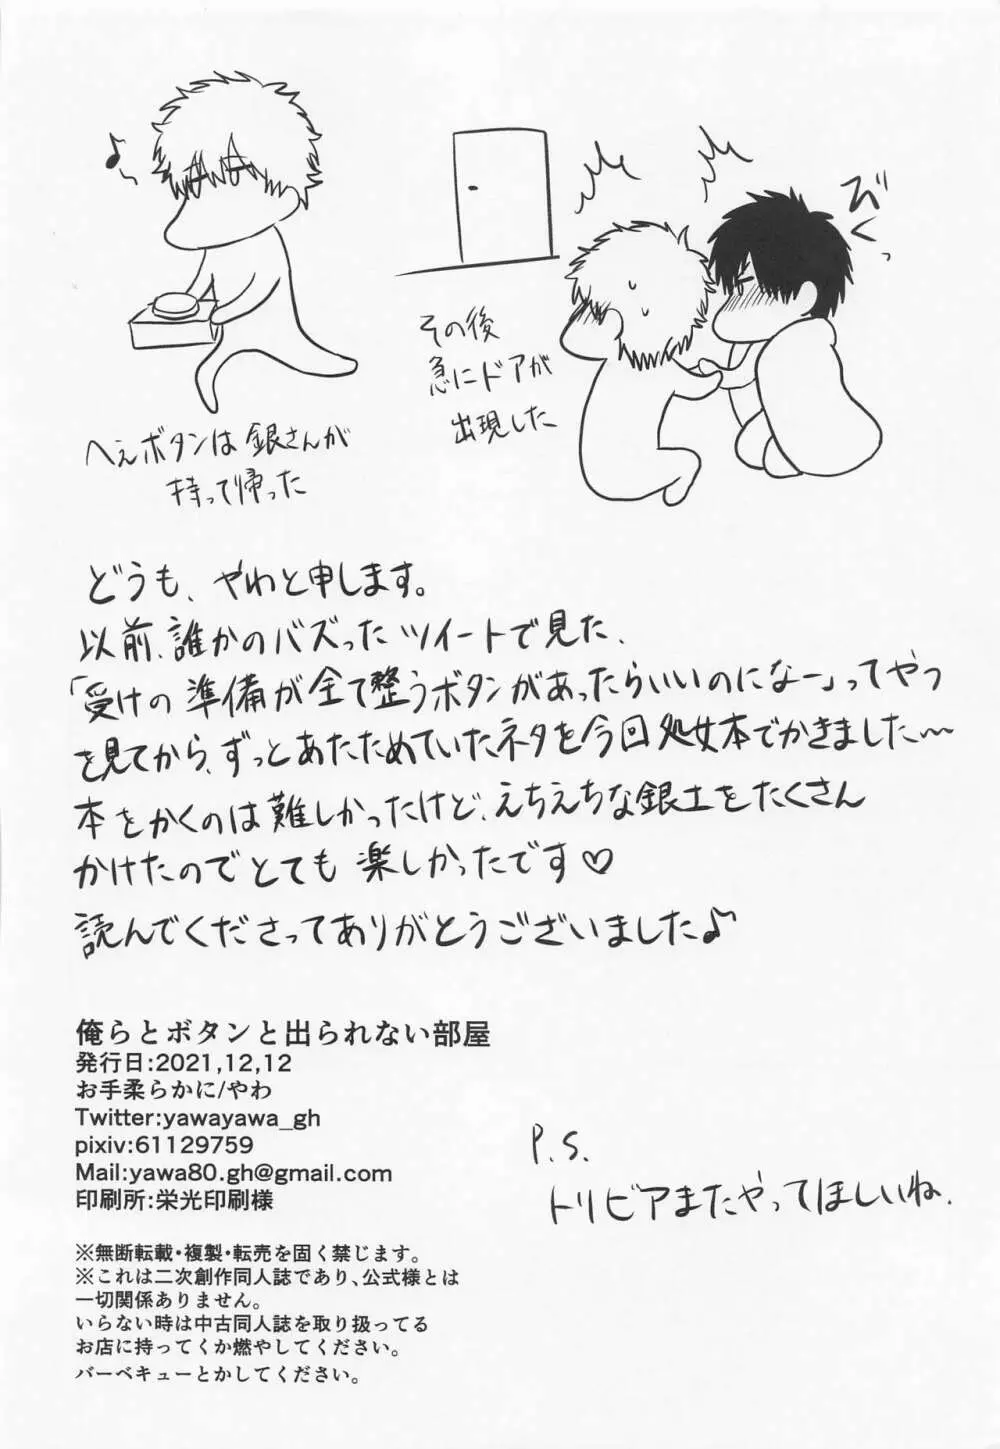 へぇボタンは銀さんが
持って帰った
その後
急にドアが
出現した
びくっ
どうも、やわと申します。
以前、誰かのバズったツイートで見た、
「受けの準備が全て整うボタンがあったらいいのになー」ってやつ
を見てから、ずっとあたためていたネタを今回処女本でかきました〜
本をかくのは難しかったけど、えちえちな銀土をたくさん
かけたのでとても楽しかったです♡
読んでくださってありがとうございました♪
俺らとボタンと出られない部屋
発行日:2021,12,12
お手柔らかに/やわ
Twitter:yawayawa_gh
pixiv:61129759
Mail:yawa80.gh@gmail.com
印刷所:栄光印刷様
P.S.
トリビアまたやってほしいね.
※無断転載・複製・転売を固く禁じます。
※これは二次創作同人誌であり、公式様とは
一切関係ありません。
いらない時は中古同人誌を取り扱ってる
お店に持ってくか燃やしてください。
バーベキューとかしてください。